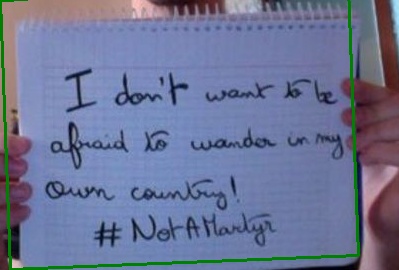 I don't want to be
afraid to wander in my
own country!
# NotAMartyr